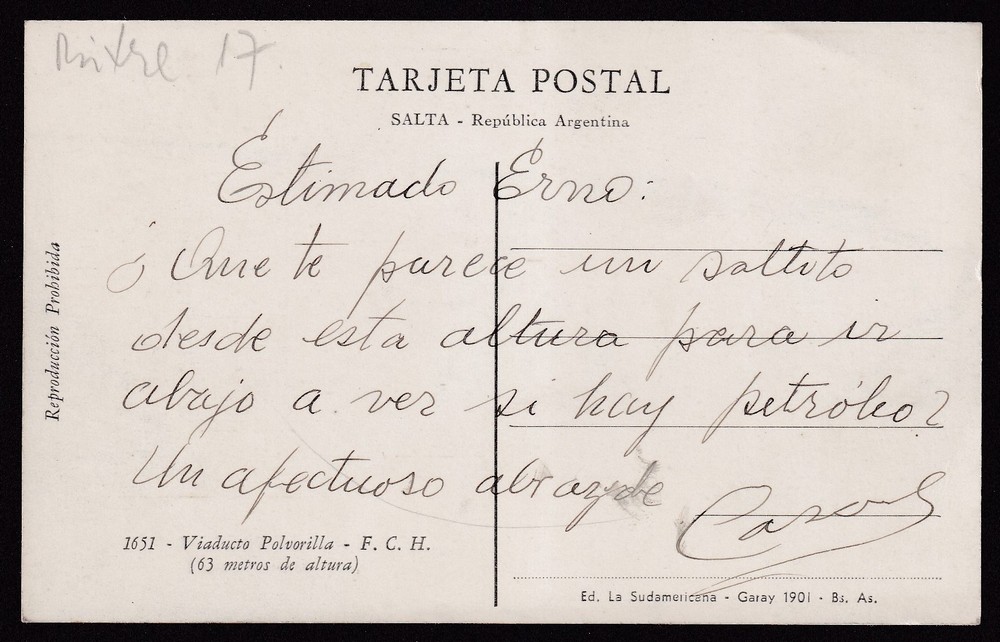 17.
TARJETA POSTAL
SALTA - República Argentina
Estimado Erno:
¿Que te parece un saltito
desde esta altura para ir
abajo a ver si hay petróleo?
Un afectuoso abrazo de
Reproducción Prohibida
1651 - Viaducto Polvorilla - F. C. H.
(63 metros de altura)
Ed. La Sudamericana - Garay 1901 - Bs. As.